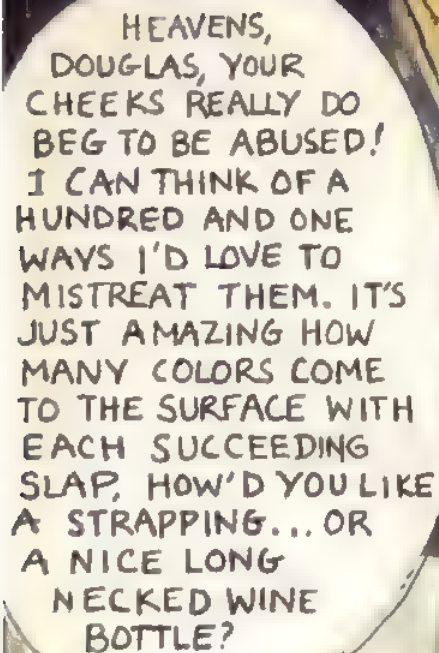 HEAVENS,
DOUGLAS, YOUR
CHEEKS REALLY DO
BEG TO BE ABUSED!
I CAN THINK OF A
HUNDRED AND ONE
WAYS I'D LOVE TO
MISTREAT THEM. IT'S
JUST AMAZING HOW
MANY COLORS COME
TO THE SURFACE WITH
EACH SUCCEEDING
SLAP. HOW'D YOU LIKE
A STRAPPING... OR
A NICE LONG
NECKED WINE
BOTTLE?